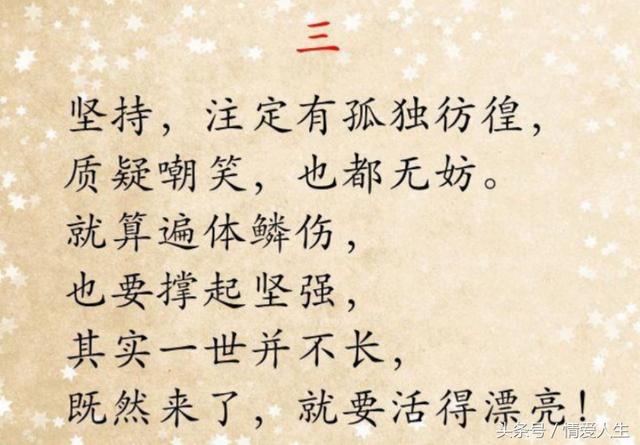 三
坚持，注定有孤独彷徨，
质疑嘲笑，也都无妨。
就算遍体鳞伤，
也要撑起坚强，
其实一世并不长，
既然来了，就要活得漂亮！
头条号/情爱人生